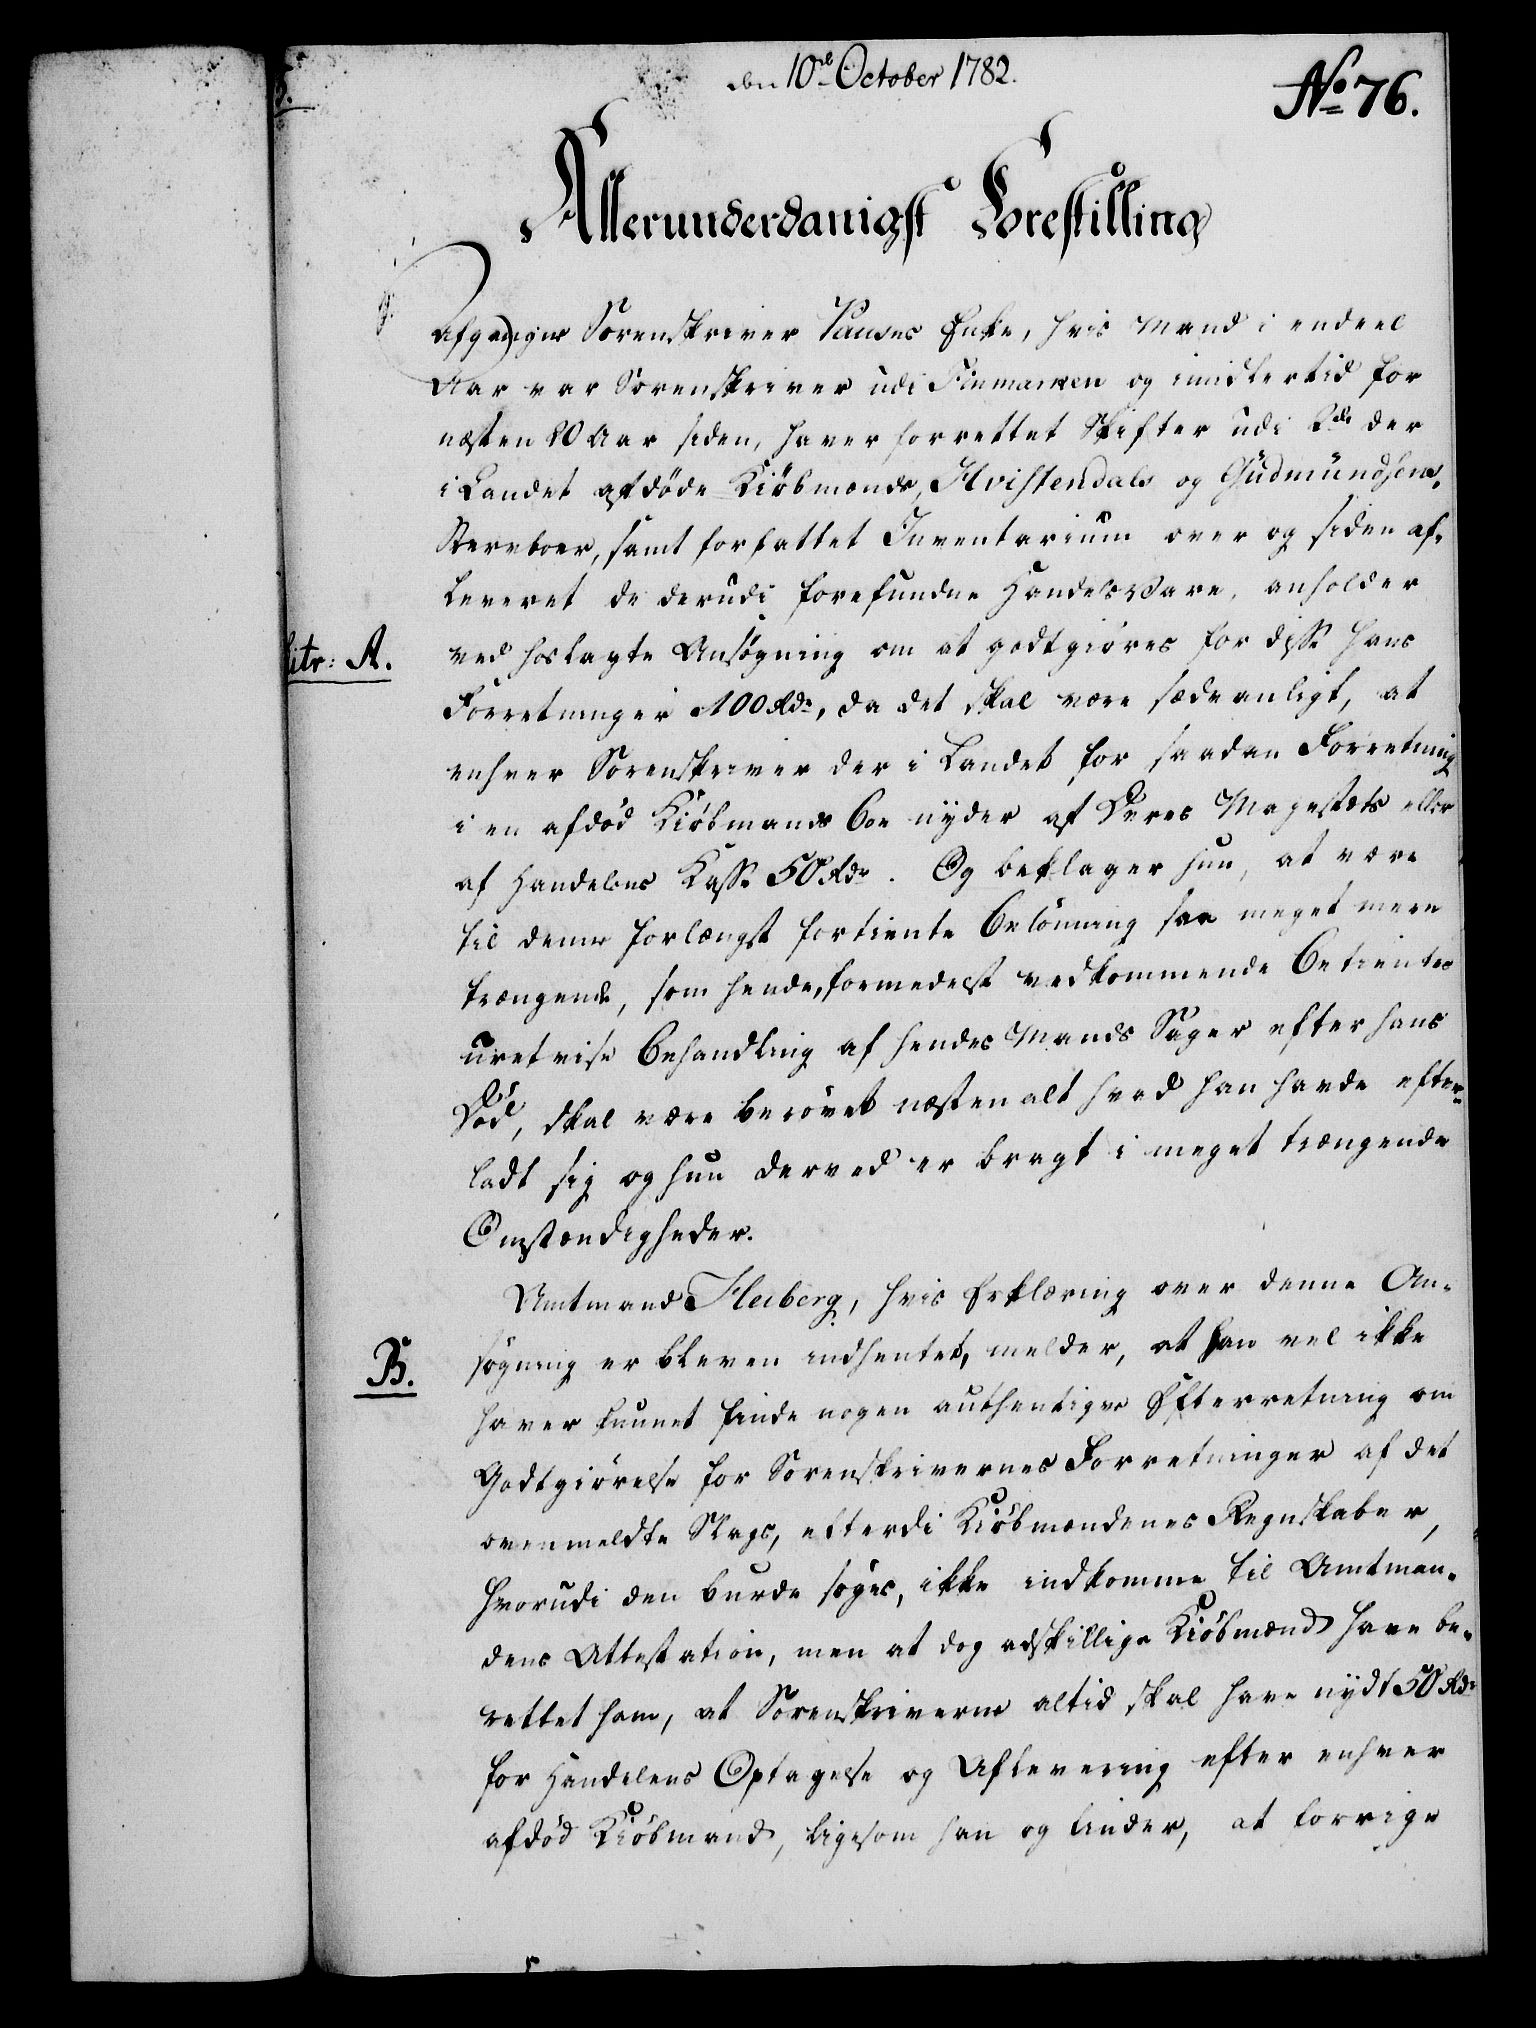 den 10de October 1782.
No 76.
Allerunderdanigst Forestilling
Afgangne Sorenskriver Pauses Enke, hvis Mand i endeel
Aar var Sorenskriver udi Finmarken og imidlertid for
næsten 20 Aar siden, haver forrettet Skifter udi 2de der
i Landet afdøde Kiøbmænds, Hvistendals og Gudmundsens,
Sterboer, samt forfattet Inventarium over og siden af-
leveret de derudi forefundne Handels Vare, anholder
Litr: A.
ved hoslagte Ansøgning om at godtgiøres for disse hans
Forretninger 100 Rdr, da det skal være sædvanligt, at
enhver Sorenskriver der i Landet for saadan Forretning
i en afdød Kiøbmands Boe nyder af Deres Majestæts eller
af Handelens Kasse 50 Rdr. Og beklager hun, at være
til denne forlængst fortiente Belønning saa meget meere
trængende, som hende, formedelst vedkommende Betientes
uretvise Behandling af hendes Mands Sager efter hans
Død, skal være berøvet næsten alt hvad han havde efter-
ladt sig og hun derved er bragt i meget trængende
Omstændigheder.
Amtmand Heiberg, hvis Erklæring over denne An-
B.
søgning er bleven indhentet, melder, at han vel ikke
haver kunnet finde nogen authentique Efterretning om
Godtgiørelse for Sorenskrivernes Forretninger af det
ovenmeldte Slags, efterdi Kiøbmændenes Regnskaber,
hvorudi den burde søges, ikke indkomme til Amtman-
dens Attestation, men at dog adskillige Kiøbmænd have be-
rettet ham, at Sorenskriverne altid skal have nydt 50 Rdr
for Handelens Optagelse og Aflevering efter enhver
afdød Kiøbmand, ligesom han og finder, at forrige